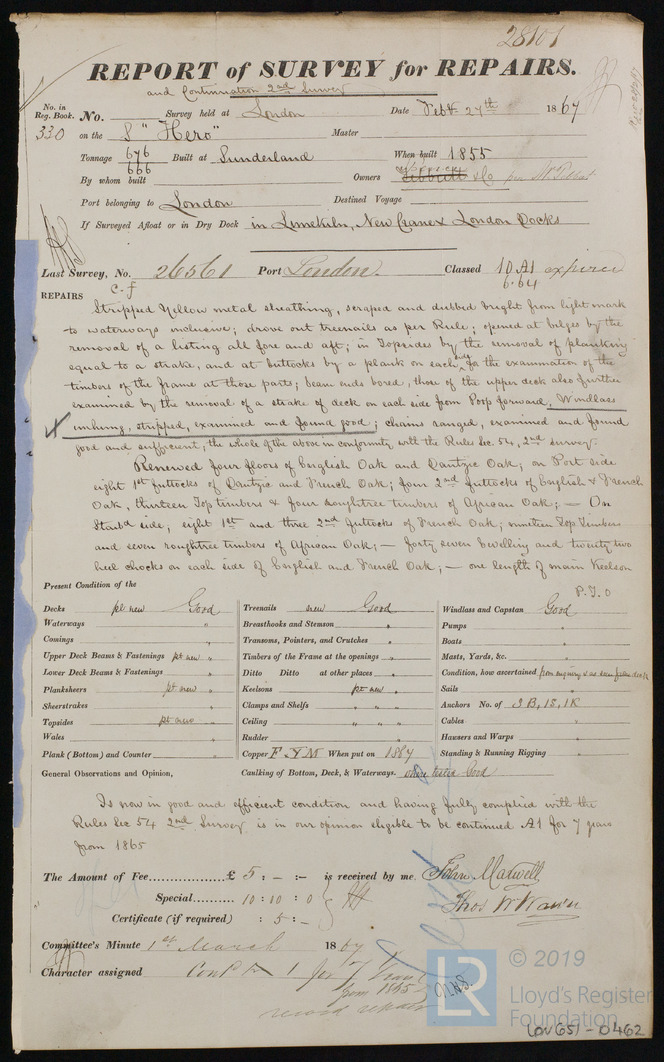 28101
REPORT of SURVEY for REPAIRS.
and Continuation 2nd Survey
No. in Reg. Book. No. Survey held at London Date Feby. 27th 1867
330 on the S "Hero" Master
Tonnage 676 Built at Sunderland When built 1855
666
By whom built Owners & Co
Port belonging to London Destined Voyage
If Surveyed Afloat or in Dry Dock in Limekiln, New Crane & London Docks
Last Survey, No. 26561 Port London. Classed 10 A1 expired
6.64
C. f
REPAIRS
Stripped Yellow metal sheathing, scraped and dubbed bright from light mark
to waterways inclusive; drove out treenails as per Rule; opened at bilges by the
removal of a listing all fore and aft; in Topsides by the removal of planking
equal to a strake, and at buttocks by a plank on each side for the examination of the
timbers of the frame at those parts; beam ends bored, those of the upper deck also further
examined by the removal of a strake of deck on each side from Poop forward, Windlass
unhung, stripped, examined and found good; chains ranged, examined and found
good and sufficient, the whole of the above in conformity with the Rules Sec. 54, 2nd survey.
Renewed four floors of English Oak and Dantzic Oak; on Port side
eight 1st futtocks of Dantzic and French Oak; four 2nd futtocks of English & French
Oak, thirteen Top timbers & four roughtree timbers of African Oak; — On
Starbd side, eight 1st and three 2nd futtocks of French Oak; nineteen Top Timbers
and seven roughtree timbers of African Oak; — forty seven and twenty two
heel chocks on each side of English and French Oak; — one length of main Keelson
P.T.O
Present Condition of the
Decks pt new Good
Waterways "
Comings "
Upper Deck Beams & Fastenings pt new "
Lower Deck Beams & Fastenings "
Planksheers pt new "
Sheerstrakes "
Topsides pt new "
Wales "
Plank (Bottom) and Counter "
Treenails new Good
Breasthooks and Stemson "
Transoms, Pointers, and Crutches "
Timbers of the Frame at the openings "
Ditto Ditto at other places "
Keelsons pt new "
Clamps and Shelfs " " "
Ceiling " " "
Rudder "
Copper F Y M When put on 1867
Windlass and Capstan Good
Pumps "
Boats "
Masts, Yards, &c. "
Condition, how ascertained from enquiry & as seen from deck
Sails "
Anchors No. of 3 B, 1 S, 1 K
Cables "
Hawsers and Warps "
Standing & Running Rigging "
General Observations and Opinion, Caulking of Bottom, Deck, & Waterways. where tested Good
Is now in good and efficient condition and having fully complied with the
Rules Sec 54 2nd Survey is in our opinion eligible to be continued A1 for 7 years
from 1865
The Amount of Fee £ 5 : - : - is received by me. John Matwell
Special 10 : 10 : 0
Certificate (if required) : 5 : -
Committee's Minute 1st March 1867
Character assigned Contd A 1 for 7 Years
from 1865
record repairs
© 2019
LR
Lloyd's Register
Foundation
LON 651-0462